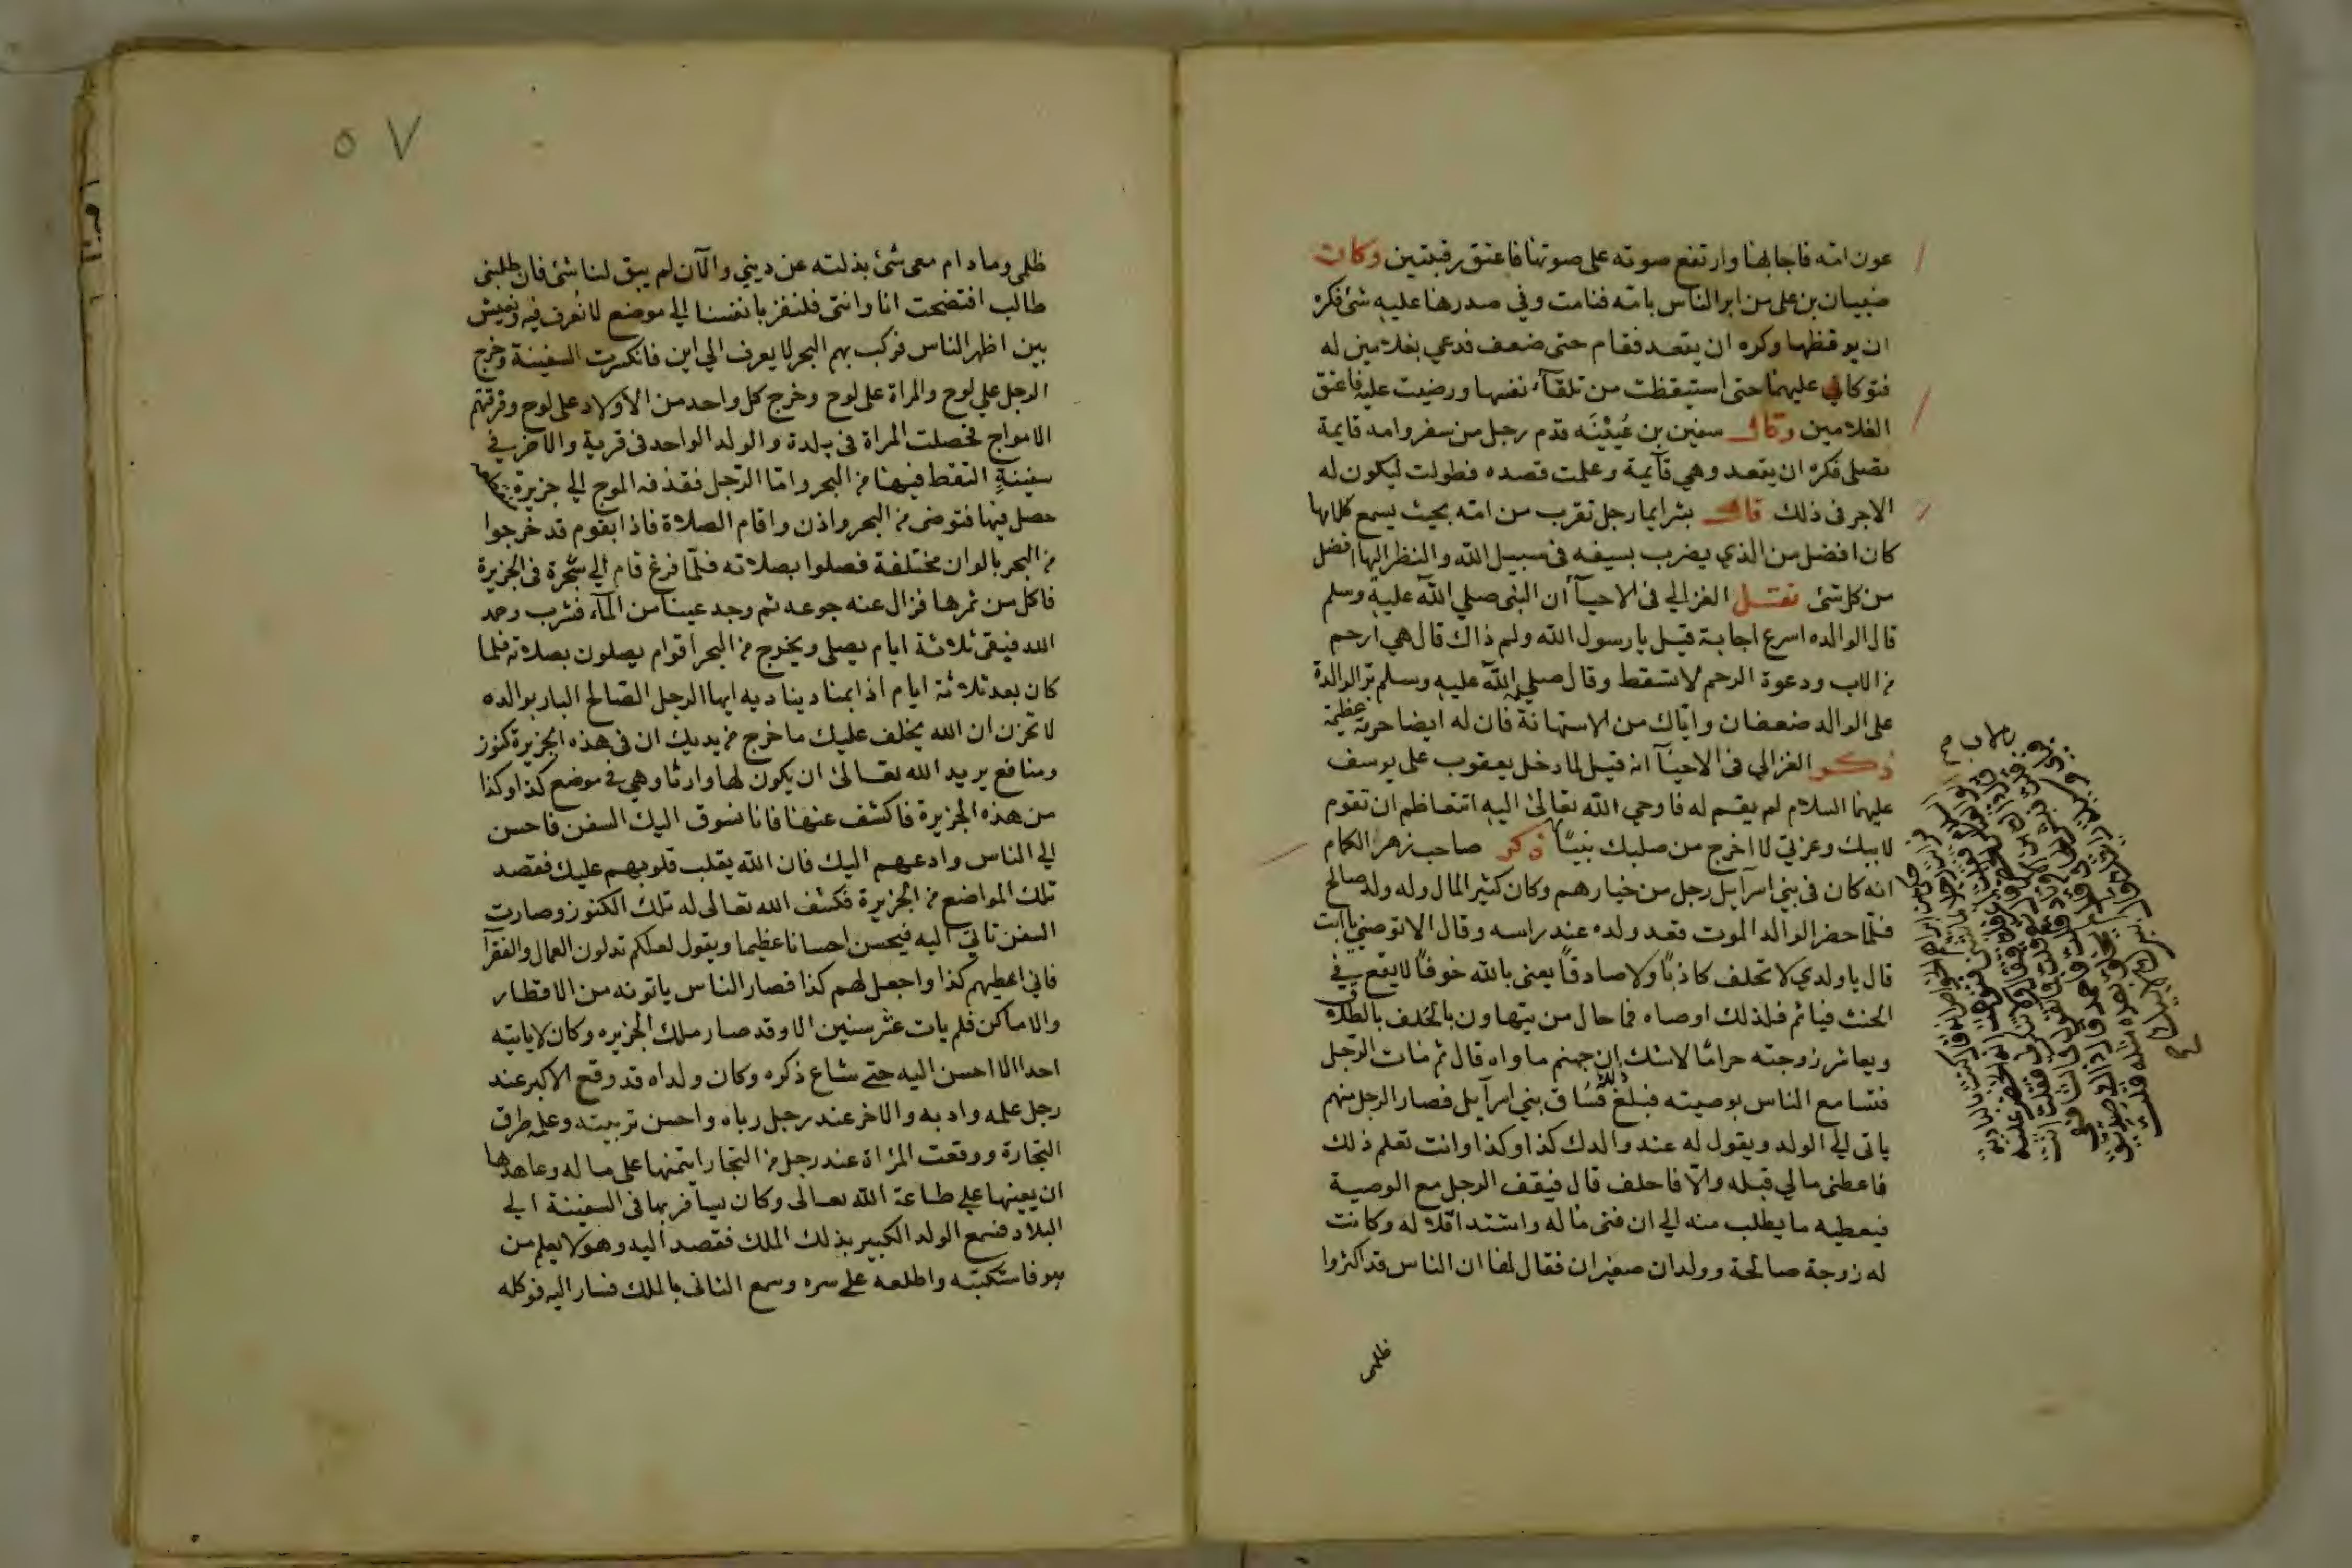 عون امه فاجابها وارتفع صوته على صوتها فاعتق رقبتين وكان
ضبيان بن على من ابر الناس بامه فنامت وفي صدرها عليه شئ فكره
ان يوقظها وكره ان يقعد فقام حتى ضعف فدعي بغلامين له
فتوكا في عليهما حتى استيقظت من تلقآء نفسها ورضيت عليه فاعتق
الغلامين وقال سفين بن عُيَيْنَه قدم رجل من سفر وامه قايمة
تصلى فكره ان يقعد وهي قآيمة وعلمت قصده فطولت ليكون له
الاجر فى ذلك قال بشر ايما رجل تقرب من امه بحيث يسمع كلامها
كان افضل من الذي يضرب بسيفه فى سبيل الله والنظر اليها افضل
من كل شئ نقل الغزالي فى الاحيآ أن النبى صلي الله عليه وسلم
قال الوالده اسرع اجابة قيل يا رسول الله ولم ذاك قال هي ارحم
من الاب ودعوة الرحم لا تسقط وقال صلي الله عليه وسلم بر الوالدة
على الوالد ضعفان واياك من الاستهانة فان له ايضا حرمة عظيمة
ذكر الغزالي فى الاحيآ انه قيل لما دخل يعقوب على يوسف
عليهما السلام لم يقم له فاوحي الله تعالى اليه اتتعاظم ان تقوم
لابيك وعزتي لا اخرج من صلبك نبيًا ذكر صاحب زهر الكمام
انه كان فى بني اسرآيل رجل من خيارهم وكان كثير المال وله ولد صالح
فلما حضر الوالد الموت قعد ولده عند راسه وقال الا توصني يا ابت
قال يا ولدي لا تحلف كاذبًا ولا صادقًا يعنى بالله خوفًا لا يقع في
الحنث فياثم فلذلك اوصاه فما حال من يتهاون بالحلف بالطلاق
ويعاشر زوجته حرامًا لا شك ان جهنم ماواه قال ثم مات الرجل
فتسامع الناس بوصيته فبلغ ذلك فُسَّاق بني اسرآيل فصار الرجل منهم
ياتى الي الولد ويقول له عند والدك كذا وكذا وانت تعلم ذلك
فاعطنى مالي قبله والّا فاحلف قال فيقف الرجل مع الوصية
فيعطيه ما يطلب منه الي ان فنى ماله واشتد اقلاله وكانت
له زوجة صالحة وولدان صغيران فقال لها ان الناس قد اكثروا
ظلمى
٥٧
ظلمى وما دام معى شئ بذلته عن ديني والآن لم يبق لنا شئ فان طلبنى
طالب افتضحت انا وانتى فلنفز بانفسنا الي موضع لا نُعرف فيه ونعيش
بين اظهر الناس فركب بهم البحر لا يعرف الي اين فانكسرت السفينة وخرج
الرجل علي لوح والمراة على لوح وخرج كل واحد من الاولاد على لوح وفرقتهم
الامواج فحصلت المراة فى بلدة والولد الواحد فى قرية والاخر في
سفينة التقط فيها من البحر واما الرجل فقذفه الموج الي جزيرة
حصل فيها فتوضى من البحر واذن واقام الصلاة فاذا بقوم قد خرجوا
من البحر بالوان مختلفة فصلوا بصلاته فلما فرغ قام الي شجرة فى الجزيرة
فاكل من ثمرها فزال عنه جوعه ثم وجد عينا من المآء فشرب وحمد
الله فبقى ثلاثة ايام يصلى ويخرج من البحر اقوام يصلون بصلاته فلما
كان بعد ثلاثة ايام اذا بمناد يناديه ايها الرجل الصالح البار بوالده
لا تحزن ان الله يخلف عليك ما خرج من يديك ان فى هذه الجزيرة كنوز
ومنافع يريد الله تعالى ان يكون لها وارثا وهي في موضع كذا وكذا
من هذه الجزيرة فاكشف عنها فانا نسوق اليك السفن فاحسن
الي الناس وادعهم اليك فان الله يقلب قلوبهم عليك فقصد
تلك المواضع من الجزيرة فكشف الله تعالى له تلك الكنوز وصارت
السفن تاتي اليه فيحسن احسانا عظيما ويقول لعلكم تدلون العمال والفقرآ
فاني اعطيهم كذا واجعل لهم كذا فصار الناس ياتونه من الاقطار
والاماكن فلم يات عشر سنين الا وقد صار ملك الجزيره وكان لا ياتيه
احدا الا احسن اليه حتى شاع ذكره وكان ولداه قد وقع الاكبر عند
رجل علمه وادبه والاخر عند رجل رباه واحسن تربيته وعلمه طرق
التجارة ووقعت المراة عند رجل من التجار ايتمنها على ماله وعاهدها
ان يعينها علي طاعة الله تعالى وكان يسافر بها فى السفينة الي
البلاد فسمع الولد الكبير بذلك الملك فقصد اليه وهو لا يعلم من
هو فاستكتبه واطلعه على سره وسمع الثانى بالملك فسار اليه فوكله